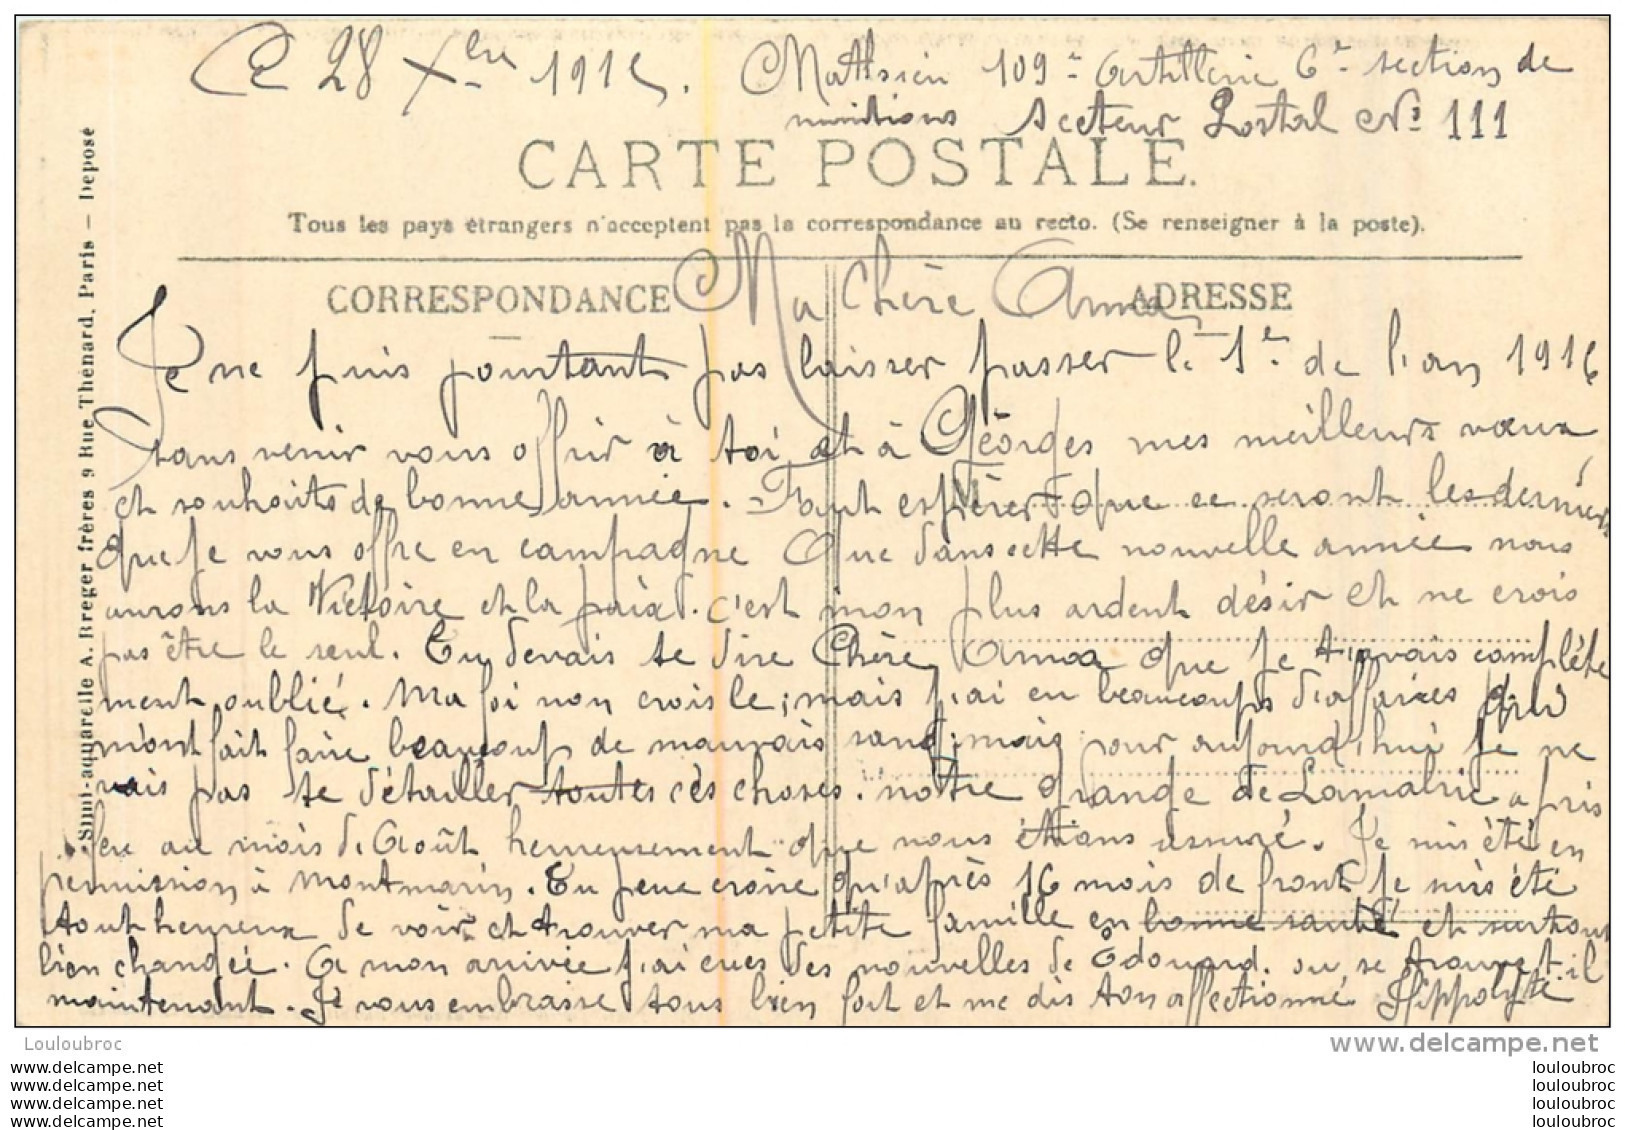 Ce 28 Xbre 1915. Mathsieu 109e Artillerie 6e section de
munitions secteur Postal No 111
CARTE POSTALE.
Tous les pays étrangers n'acceptent pas la correspondance au recto. (Se renseigner à la poste).
CORRESPONDANCE
ADRESSE
Ma Chère Anna
Je ne puis pourtant pas laisser passer le 1er de l'an 1916
sans venir vous offrir à toi et à Géorges mes meilleurs vœux
et souhaits de bonne année. Faut espérer que ce seront les derniers
que je vous offre en campagne Que dans cette nouvelle année nous
aurons la Victoire et la paix. c'est mon plus ardent désir et ne crois
pas être le seul. Tu devais te dire Chère Anna que je t'avais complète
ment oublié. Ma foi non crois le; mais j'ai eu beaucoups d'affaires qui
m'ont fait faire beaucoup de mauvais sang; mais pour aujourd'hui je ne
vais pas te détailler toutes cès choses. notre grange de Lamalric a pris
feu au mois d'Août heureusement que nous étions assuré. Je suis été en
permission à Montmarin. Tu peux croire qu'après 16 mois de front je suis été
tout heureux de voir et trouver ma petite famille en bonne santé et surtout
bien changée. A mon arrivée j'ai eues des nouvelles de Edouard. ou se trouve t-il
maintenant. Je vous embrasse tous bien fort et me dis ton affectionné Hippolyte
Simi-aquarelle A. Breger frères 9 Rue Thénard, Paris — Déposé
Louloubroc
www.delcampe.net
louloubroc
louloubroc
louloubroc
louloubroc
louloubroc
louloubroc
louloubroc
louloubroc